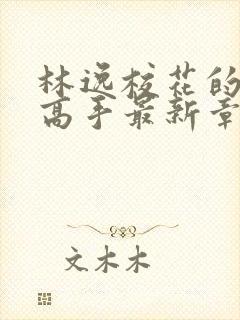 林逸校花的
高手最新章
文木木